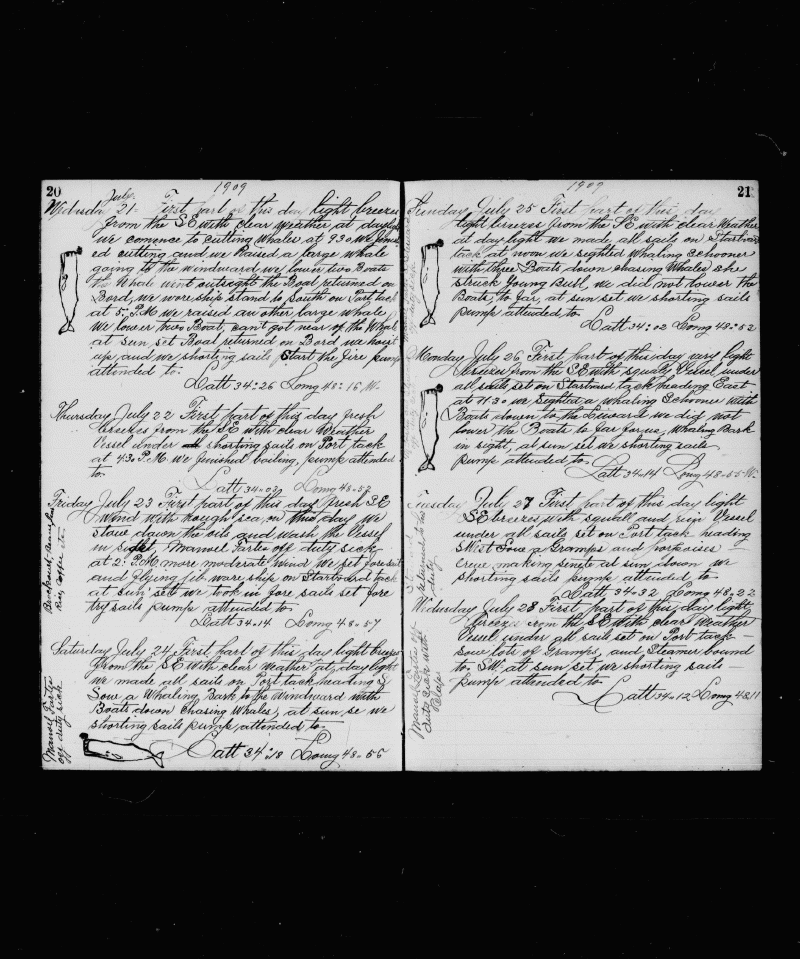 20
1909
July
Wednesda 21- First part of this day light breezes
from the SE with clear weather at daylight
we comence to cutting Whales at 9.30 we finish
ed cutting and we Raised a large whale
going to the windward we lower two Boats
the Whale went outright the Boat returned on
Bord, we wore ship stand to South on Port tack
at 5. P.M we raised an other large whale
We lower two Boat, can't got near of the Whale
at sun set Boat returned on Bord we hoist
up, and we shorting sails Start the fire pump
attended to.
Latt 34:26 Long 48:16 W.
Thursday July 22 First part of this day fresh
breezes from the SE with clear Weather
Vessel under shorting sails on Port tack
at 4.30 P.M we finished boiling, pump attended
to.
Latt 34-03 Long 48-52
Friday July 23 First part of this day fresh SE
Wind with rough sea, on this day we
stow down the oile and wash the Vessel
in side, Manuel Fartes off duty sick
at 2. P.M more moderate wind We set fore sail
and flying jib ware ship on Starboard tack
at sun sett we took in fore sails set fore
try sails pump attended to
Latt 34-14 Long 48-57
Saturday July 24 First part of this day light breeze
from the SE With clear weather at day light
we made all sails on Port tack heading S
Sow a Whaling Bark to the Windward with
Boats down chasing Whales, at sun, se we
shorting sails pump, attended to-
Manuel Fartes
off duty sick
Latt 34:18 Long 48-56
21
1909
Sunday July 25 First part of this day
light breezes from the SE with clear Weather
at day light we made all sails on Starboard
tack, at noon we sighted Whaling Schooner
with three Boats down chasing Whales she
struck young Bull, we did not lower the
Boats, to far, at sun set we shorting sails
pump attended to
Latt 34:02 Long 48:52
Monday July 26 First part of this day very light
breezes from the SE with squally Vessel under
all sails set on Starboard tack heading East
at 7.30 we Sighted a Whaling Schooner with
Boats down to the Leeward we did not
lower the Boats to far for us, Whaling Bark
in sight, at sun set we shorting sails
pump attended to
Latt 34-14 Long 48-55 W.
Tuesday July 27 First part of this day light
SE breezes with squall and rein Vessel
under all sails set on Port tack heading
SWest Sow a Gramps and porpoises
Crew making senete at sun down we
shorting sails pump attended to
Latt 34-32 Long 48-22
Wednesday July 28 First part of this day light
breezes from the SE, With clear Weather
Vessel under all sails set on Port tack-
Sow lots of Gramps, and Steamer bound
to SW, at sun set we shorting sails-
pump attended to
duty sick with
Latt 34-12 Long 48-11